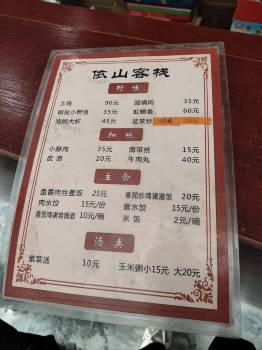 依山客栈
野味
土鸡 90元 回锅肉 35元
椒盐小野鱼 35元 虹鳟鱼 60元
45元 韭菜炒
扣碗
小酥肉 35元 海带丝 15元
皮渣 20元 牛肉丸 40元
主食
鱼香肉丝盖饭 25元 番茄炒鸡蛋盖饭 20元
肉水饺 15元/份 素水饺 15元/份
番茄鸡蛋捞面 10元/碗 米饭 2元/碗
汤类
紫菜汤 10元 玉米粥小15元 大20元